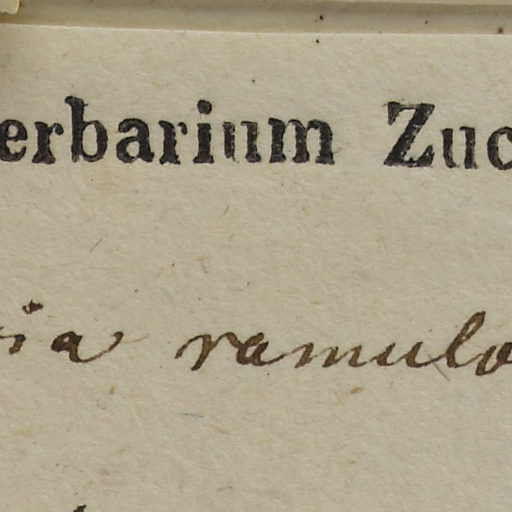 erbarium Zuc
ia ramulo